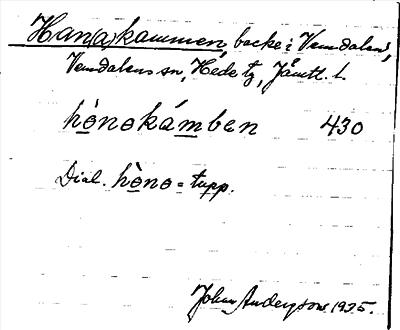 Han(a)kammen, backe i Vemdalen,
Vemdalens sn, Hede tg, Jämtl. l.
hònokámben 430
Dial. hòno = tupp.
John Andersson 1935.